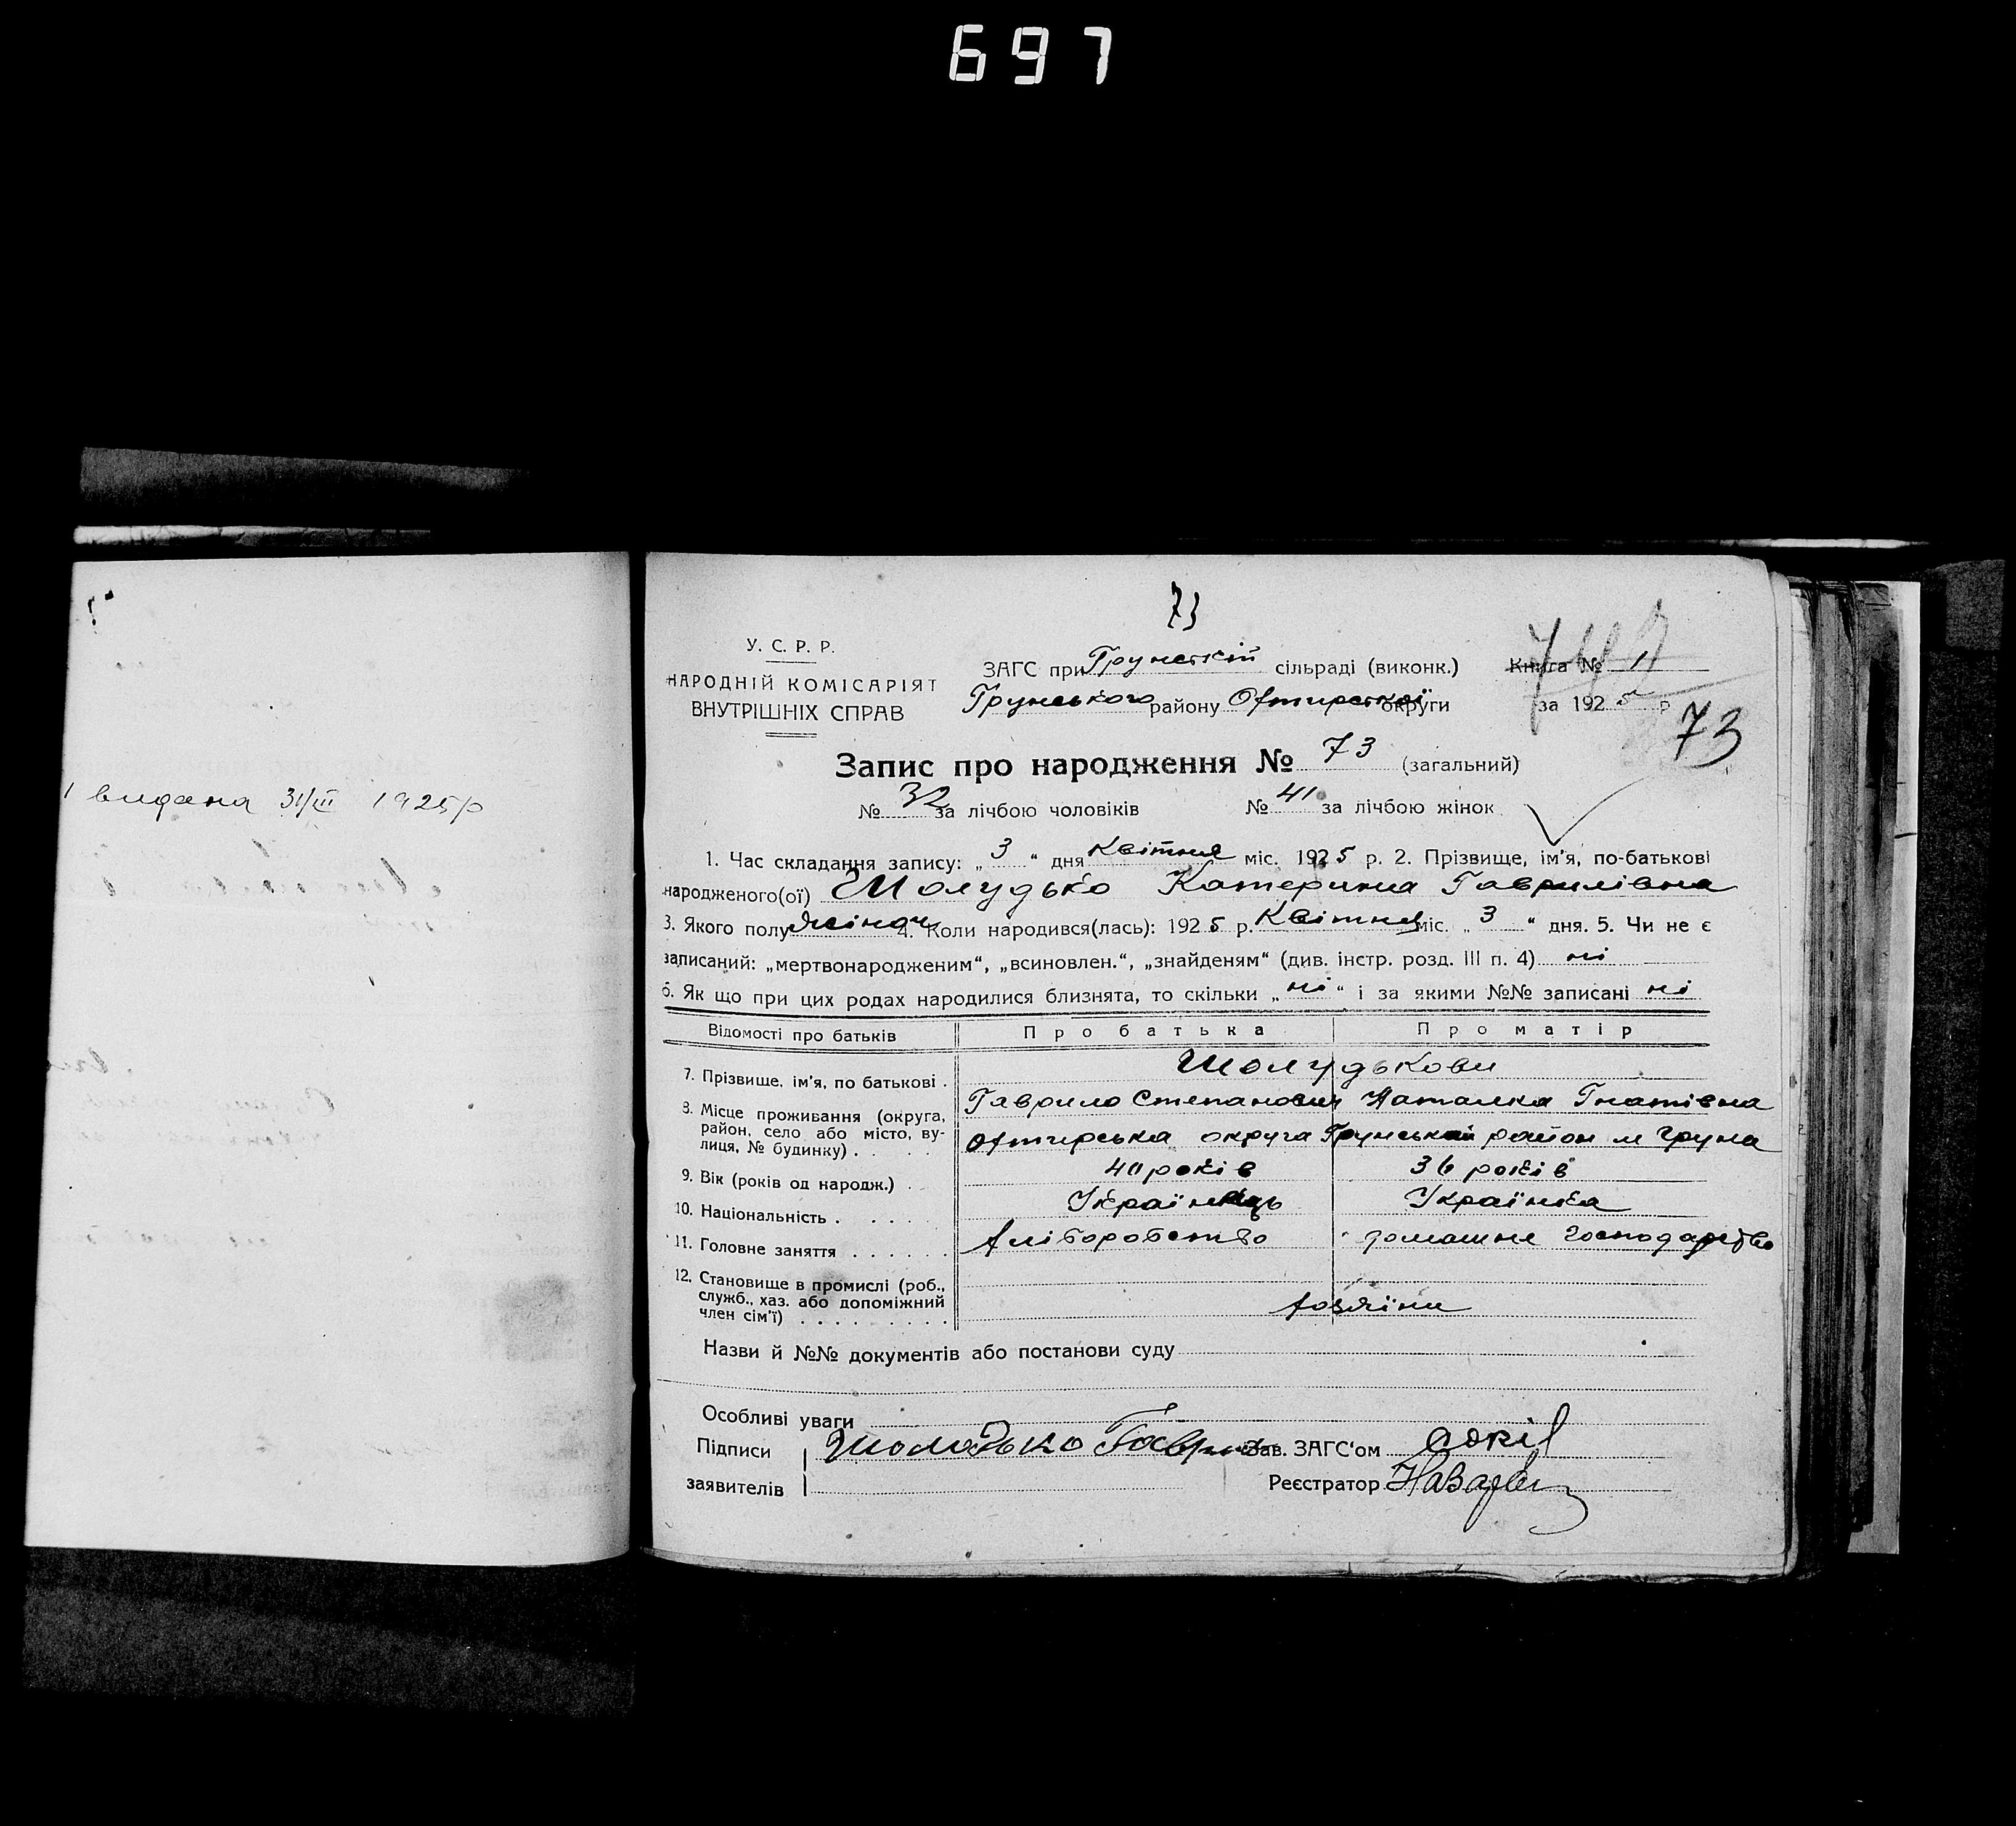 697
1 видана 31/III 1925р
73
У. С. Р. Р.
НАРОДНІЙ КОМІСАРІЯТ
ВНУТРІШНІХ СПРАВ
ЗАГС при Грунській сільраді (виконк.)
Грунського району Охтирської округи
Книга № 1
за 1925 р
73
Запис про народження № 73 (загальний)
№ 32 за лічбою чоловіків № 41 за лічбою жінок
1. Час складання запису: „ 3 “ дня Квітня міс. 1925 р. 2. Прізвище, ім’я, по-батькові
народженого(ої) Шолудько Катерина Гаврилівна
3. Якого полу жіноч. 4. Коли народився(лась): 1925 р. Квітня міс. „ 3 “ дня. 5. Чи не є
записаний: „мертвонародженим“, „всиновлен.“, „знайденям“ (див. інстр. розд. III п. 4) ні
6. Як що при цих родах народилися близнята, то скільки „ ні “ і за якими №№ записані ні
Відомості про батьків Про батька Про матір
7. Прізвище, ім’я, по батькові . Шолудькови
Гаврило Степанович Наталка Гнатівна
8. Місце проживання (округа, район, село або місто, ву-
лиця, № будинку) . . . . Охтирська округа Грунський район м Груна
9. Вік (років од народж.) . 40 років 36 років
10. Національність . . . . . Українець Українка
11. Головне заняття . . . . . . Хліборобство домашнє господарство
12. Становище в промислі (роб.,
служб., хаз. або допоміжний
член сім’ї) . . . . . . . . . хозяїни
Назви й №№ документів або постанови суду
Особливі уваги
Підписи Шолодько Гаврило Зав. ЗАГС‘ом
заявителів Реєстратор